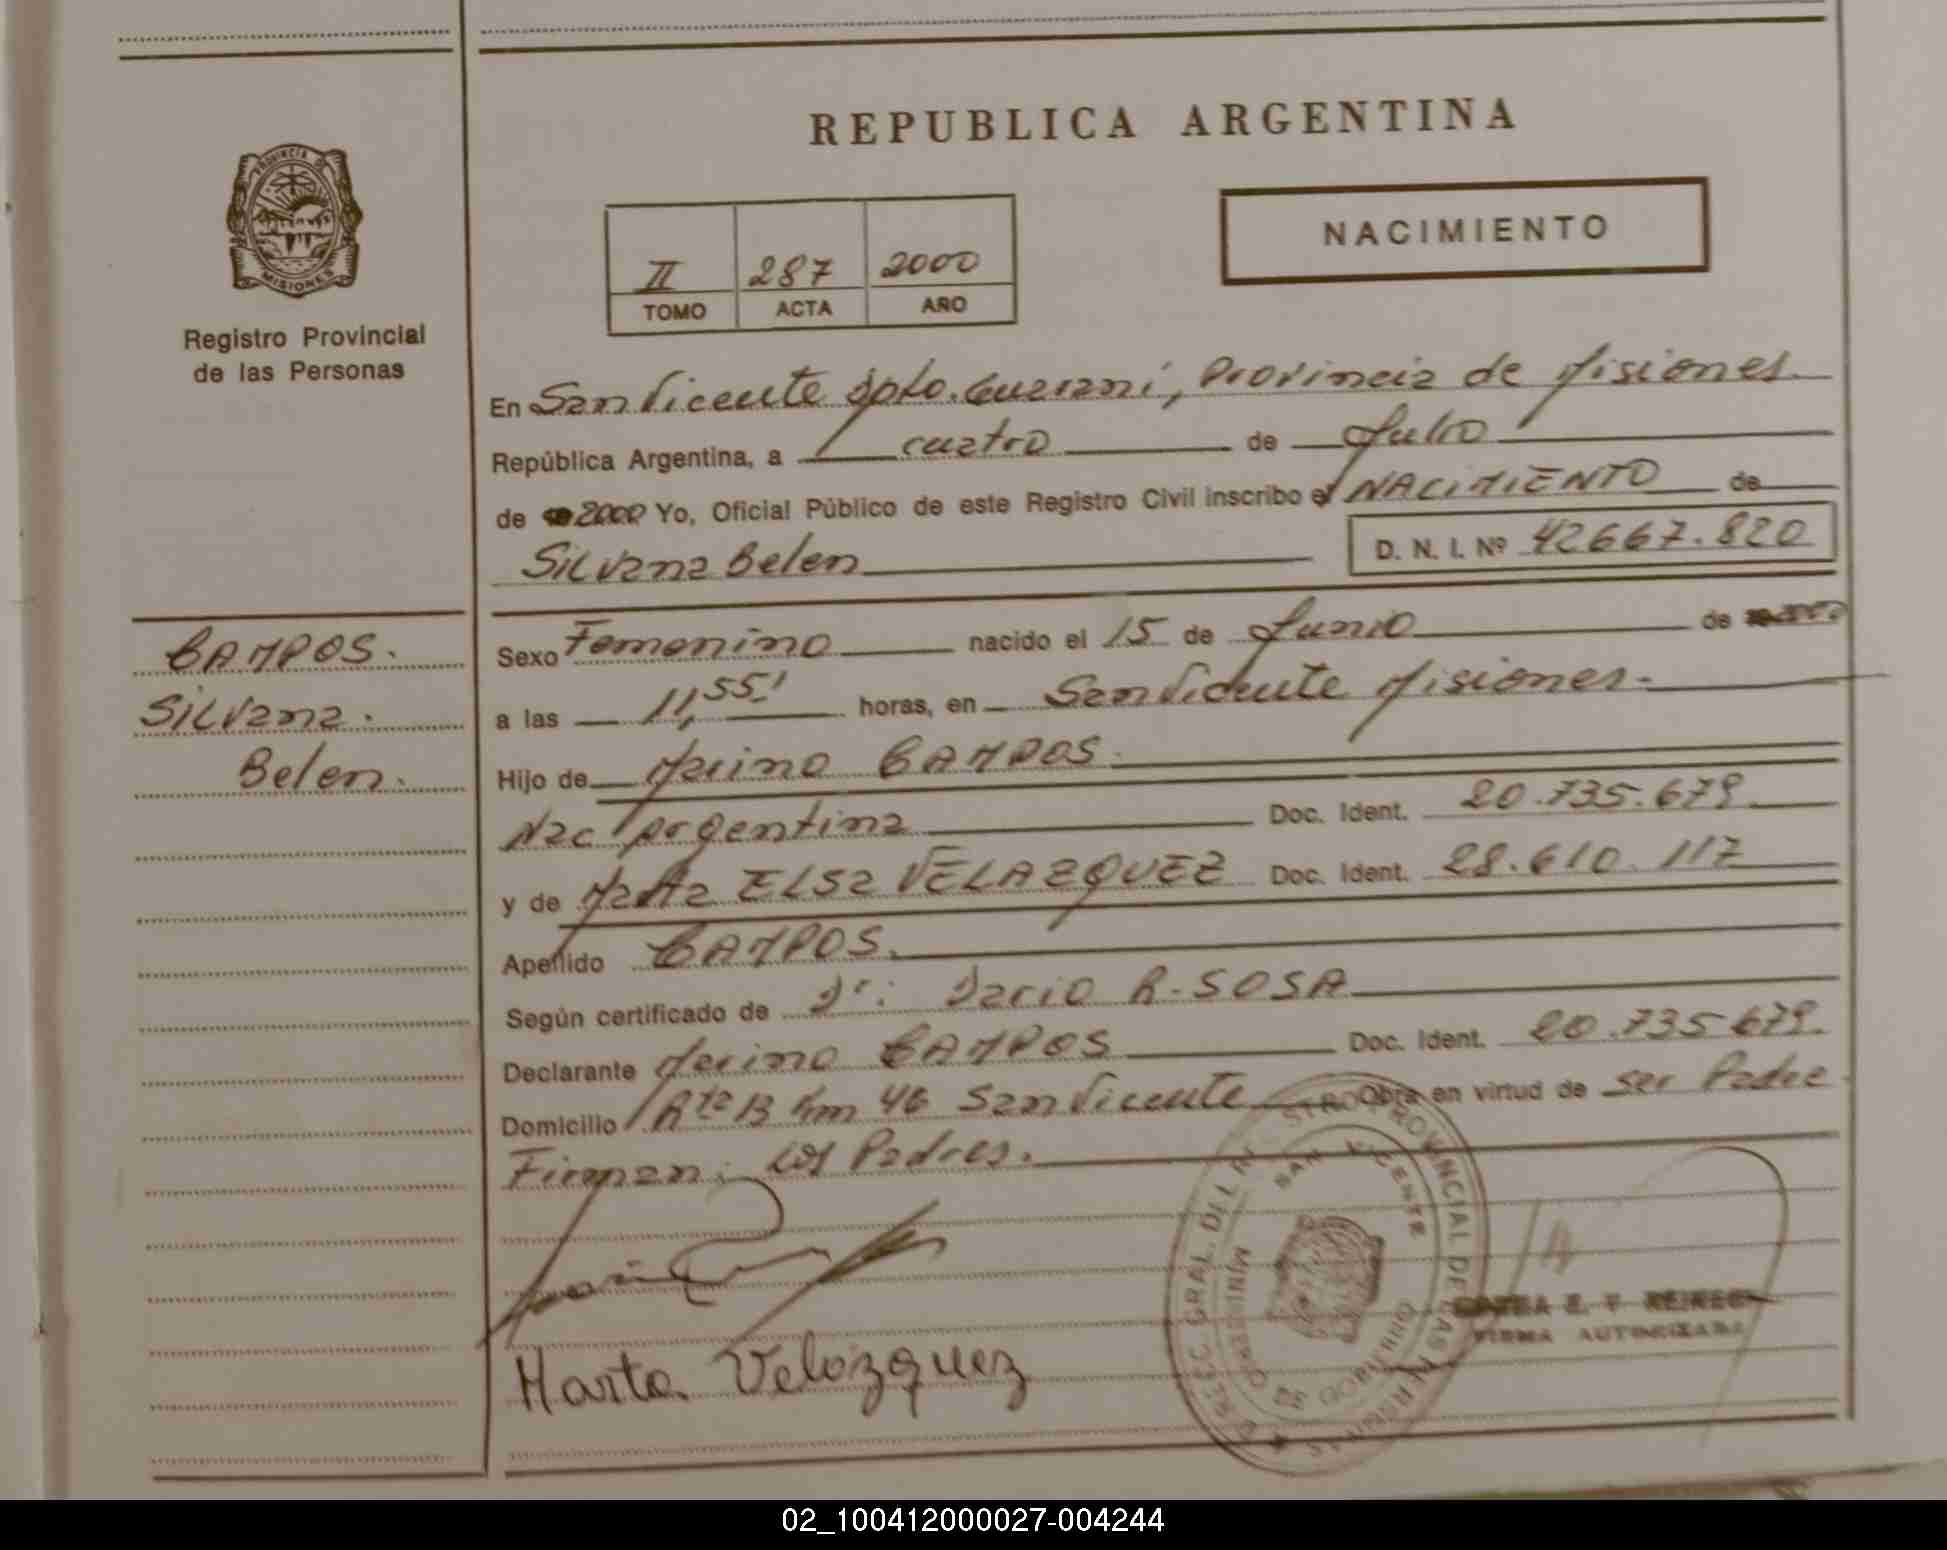 REPUBLICA ARGENTINA
PROVINCIA DE
MISIONES
Registro Provincial
de las Personas
II 287 2000
TOMO ACTA AÑO
NACIMIENTO
En San Vicente Dpto. Guarani, Provincia de Misiones.
República Argentina, a cuatro de Julio
de 2000 Yo, Oficial Público de este Registro Civil inscribo el NACIMIENTO de
Silvana Belen D. N. I. Nº 42667.820
CAMPOS.
Silvana.
Belen.
Sexo Femenino nacido el 15 de Junio de
a las 11,55' horas, en San Vicente Misiones.
Hijo de Marino CAMPOS.
Nac Argentina Doc. Ident. 20.735.679
y de Marta ELSA VELAZQUEZ Doc. Ident. 28.610.117
Apellido CAMPOS.
Según certificado de Dr: Dario R. SOSA
Declarante Marino CAMPOS Doc. Ident. 20.735 679.
Domicilio Rta 13 Km 46 San Vicente Obra en virtud de ser Padre
Firman: Los Padres.
Marta Velazquez
DIRECC. GRAL. DEL REGISTRO PROVINCIAL DE LAS PERSONAS
SAN VICENTE
MINISTERIO DE GOBIERNO
FIRMA AUTORIZADA
02_100412000027-004244